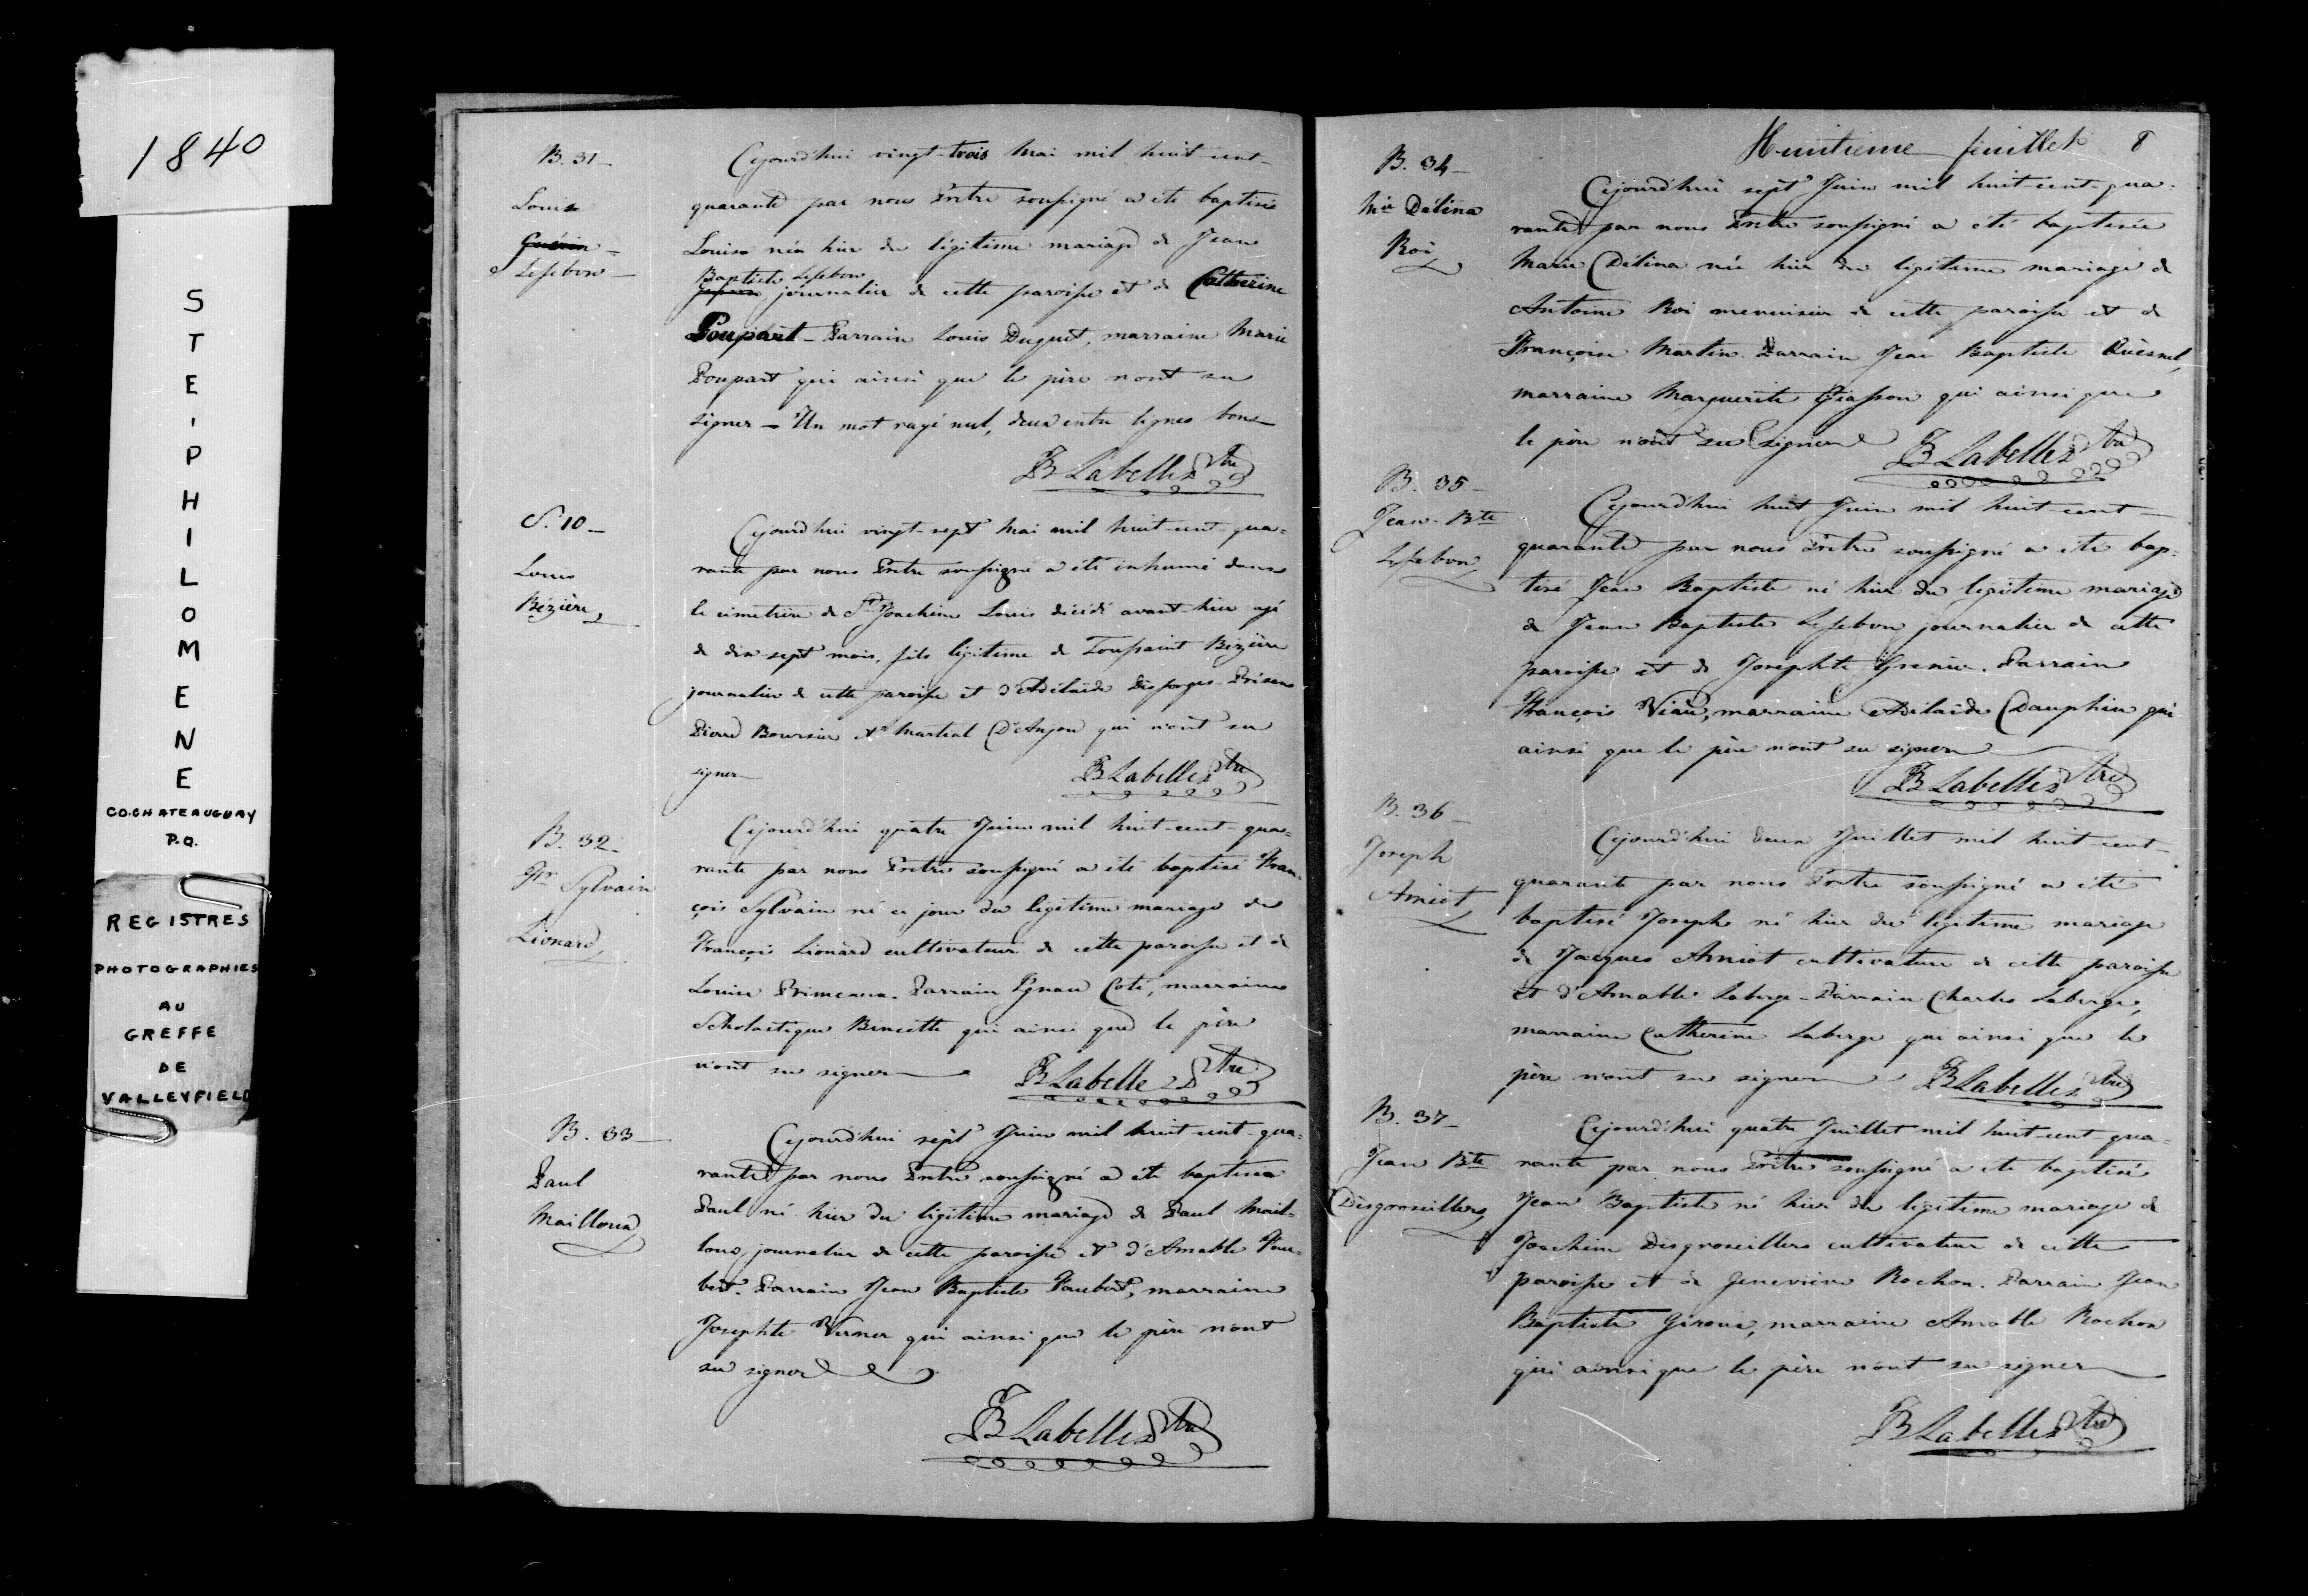 1840
STE-PHILOMENE
CO. CHATEAUGUAY
P.Q.
REGISTRES
PHOTOGRAPHIES
AU
GREFFE
DE
VALLEYFIELD
B. 31
Louise
Lefebvre
Cejourd'hui vingt-trois Mai mil huit-cent-
quarante par nous Prêtre soussigné a été baptisée
Louise née hier du légitime mariage de Jean
Baptiste Lefebvre
journalier de cette paroisse et de Catherine
Poupart - Parrain Louis Duquet, marraine Marie
Poupart qui ainsi que le père n'ont su
signer - Un mot rayé nul, deux entre lignes bons
JB Labelle Ptre
S. 10
Louis
Bézière
Cejourd'hui vingt-sept Mai mil huit-cent-qua-
rante par nous Prêtre soussigné a été inhumé dans
le cimetière de St Joachim Louis décédé avant-hier agé
de dix-sept mois, fils légitime de Toussaint Bézière
journalier de cette paroisse et d'Adélaïde Desforges - Présens
Pierre Boursier et Martial D'Anjou qui n'ont su
signer
JB Labelle Ptre
B. 32
Frs Sylvain
Léonard
Cejourd'hui quatre Juin mil huit-cent-qua-
rante par nous Prêtre soussigné a été baptisé Fran-
çois Sylvain né ce jour du légitime mariage de
François Léonard cultivateur de cette paroisse et de
Louise Primeaux. Parrain Ignace Coté, marraine
Scholastique qui ainsi que le père
n'ont su signer
JB Labelle Ptre
B. 33
Paul
Mailloux
Cejourd'hui sept Juin mil huit-cent-qua-
rante par nous Prêtre soussigné a été baptisé
Paul né hier du légitime mariage de Paul Mail-
loux, journalier de cette paroisse et d'Amable Fau-
bert. Parrain Jean Baptiste Faubert, marraine
Josephte Verner qui ainsi que le père n'ont
su signer
JB Labelle Ptre
Huitième feuillet 8
B. 34
Mie Délina
Roi
Cejourd'hui sept Juin mil huit-cent-qua-
rante par nous Prêtre soussigné a été baptisée
Marie Délina née hier du légitime mariage de
Antoine Roi menuisier de cette paroisse et de
Françoise Martin Parrain Jean Baptiste Quesnel,
marraine Marguerite Giasson qui ainsi que
le père n'ont su signer
JB Labelle Ptre
B. 35
Jean-Bte
Lefebvre
Cejourd'hui huit Juin mil huit-cent-
quarante par nous Prêtre soussigné a été bap-
tisé Jean Baptiste né hier du légitime mariage
de Jean Baptiste Lefebvre journalier de cette
paroisse et de Josephte Grenier. Parrain
François Viau, marraine Adélaïde Dauphin qui
ainsi que le père n'ont su signer
JB Labelle Ptre
B. 36
Joseph
Amiot
Cejourd'hui deux Juillet mil huit-cent-
quarante par nous Prêtre soussigné a été
baptisé Joseph né hier du légitime mariage
de Jacques Amiot cultivateur de cette paroisse
et d'Amable Laberge - Parrain Charles Laberge,
marraine Catherine Laberge qui ainsi que le
père n'ont su signer
JB Labelle Ptre
B. 37
Jean Bte
Desgroseillers
Cejourd'hui quatre Juillet mil huit-cent-qua-
rante par nous Prêtre soussigné a été baptisé
Jean Baptiste né hier du légitime mariage de
Joachim Desgroseillers cultivateur de cette
paroisse et de Geneviève Rochon. Parrain Jean
Baptiste Giroux, marraine Amable Rochon
qui ainsi que le père n'ont su signer
JB Labelle Ptre